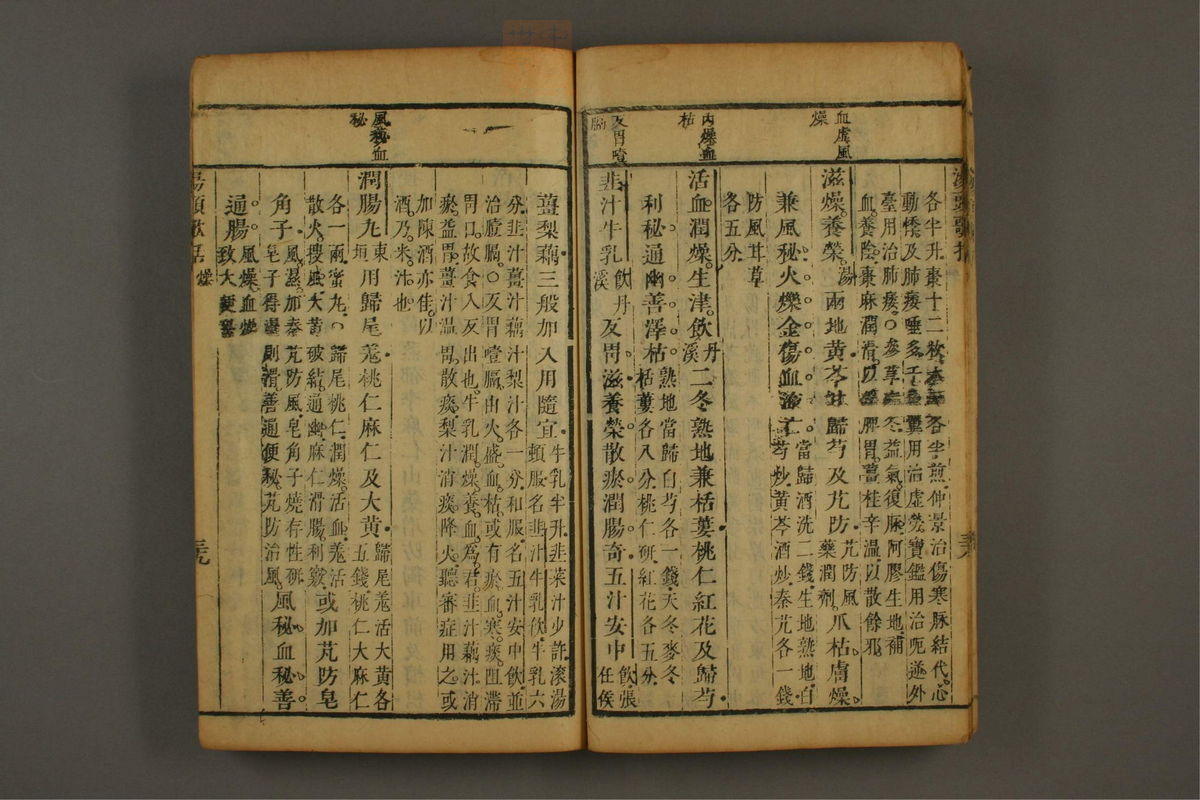 血虛風燥
內燥血枯
反胃噎膈
各半升棗十二枚
各半煎仲景治傷寒脉結代心
動悸及肺痿唾多
翼用治虛勞寶鑑用治呃逆外
臺用治肺痿○參草
冬益氣復脉阿膠生地補
血養陰棗麻潤滑以
脾胃薑桂辛溫以散餘邪
滋燥養榮湯兩地黃芩甘歸芍及艽防
艽防風
藥潤劑
爪枯膚燥
兼風秘火爍金傷血液亡
當歸酒洗二錢生地熟地白
芍炒黃芩酒炒秦艽各一錢
防風甘草
各五分
活血潤燥生津飲
丹溪
二冬熟地兼栝蔞桃仁紅花及歸芍
利秘通幽善澤枯
熟地當歸白芍各一錢天冬麥冬
栝蔞各八分桃仁研紅花各五分
韭汁牛乳飲
丹溪
反胃滋養榮散瘀潤腸奇五汁安中飲
張任侯
三八
風秘血秘
薑梨藕三般加入用隨宜
牛乳半升韭菜汁少許滾湯
頓服名韭汁牛乳飲牛乳六
分韭汁薑汁藕汁梨汁各一分和服名五汁安中飲並
治噎膈○反胃噎膈由火盛血枯或有瘀血寒痰阻滯
胃口故食入反出也牛乳潤燥養血為君韭汁藕汁消
瘀益胃薑汁溫胃散痰梨汁消痰降火聽審症用之或
加陳酒亦佳以
酒乃米汁也
潤腸丸
東垣
用歸尾羗桃仁麻仁及大黃
歸尾羗活大黃各
五錢桃仁大麻仁
各一兩蜜丸○歸尾桃仁潤燥活血羗活
散火搜風大黃破結通幽麻仁滑腸利竅
或加艽防皂
角子
風濕加秦艽防風皂角子燒存性研
皂子得濕則滑善通便秘艽防治風
風秘血秘善
通腸
風燥血燥
致大便秘
湯頭歌括
燥
三九